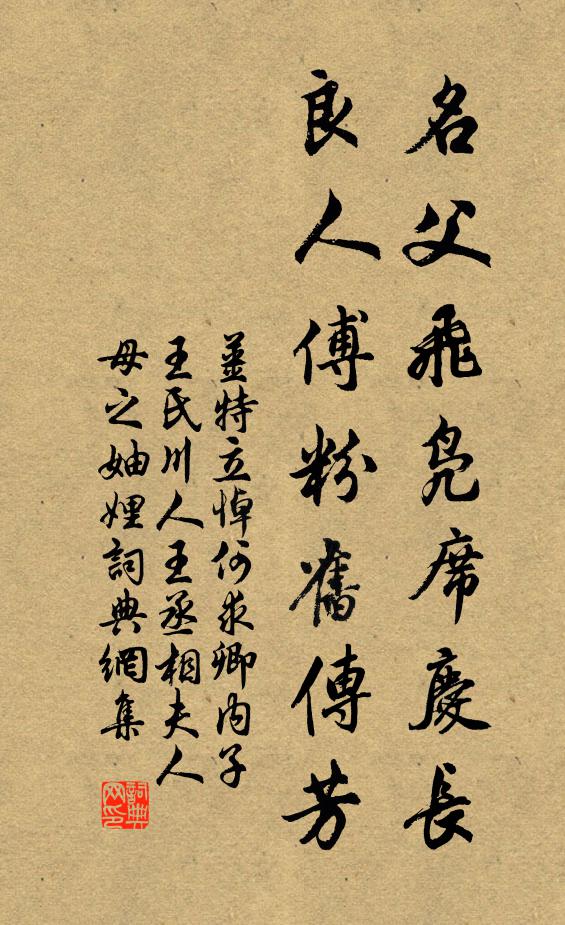 名父飛鳧席慶長
良人傅粉舊傳芳
姜特立悼何求卿內子
王氏川人王丞相夫人
母之妯娌詞典網集
詞典网印